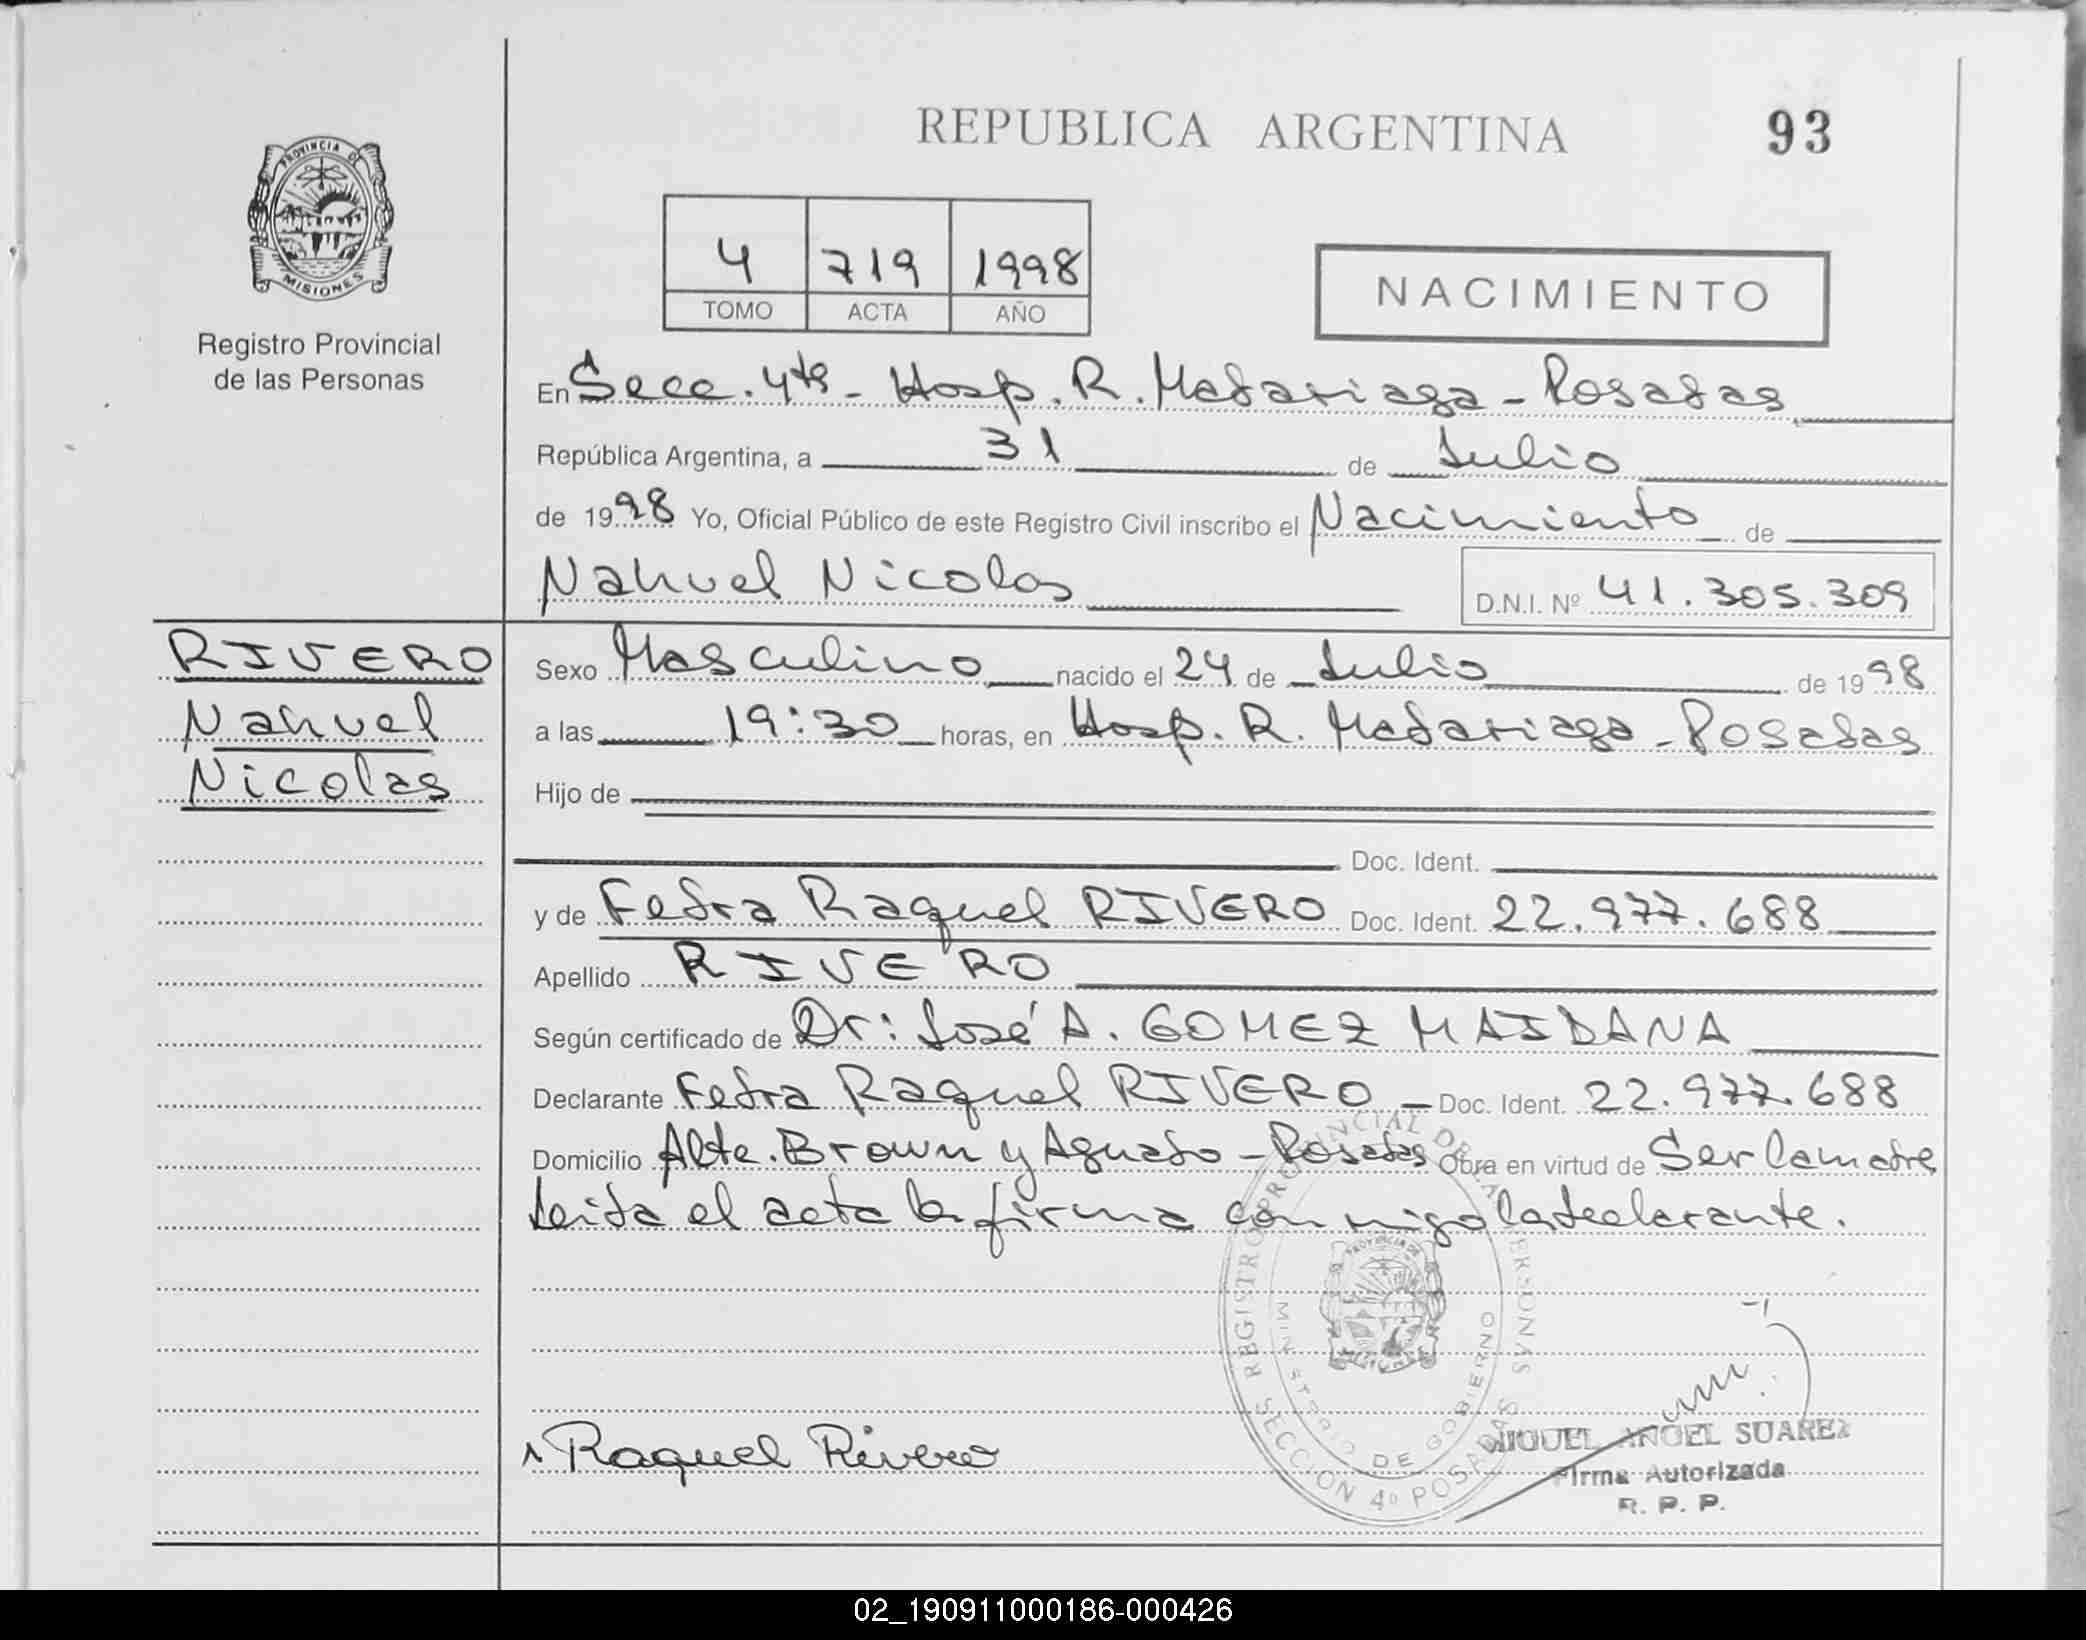 REPUBLICA ARGENTINA
93
PROVINCIA DE
MISIONES
Registro Provincial
de las Personas
4 719 1998
TOMO ACTA AÑO
NACIMIENTO
En Secc. 4ta - Hosp. R. Madariaga - Posadas
República Argentina, a 31 de Julio
de 1998 Yo, Oficial Público de este Registro Civil inscribo el Nacimiento de
Nahuel Nicolas D.N.I. Nº 41.305.309
RIVERO
Nahuel
Nicolas
Sexo Masculino nacido el 24 de Julio de 1998
a las 19:30 horas, en Hosp. R. Madariaga - Posadas
Hijo de
Doc. Ident.
y de Fedra Raquel RIVERO Doc. Ident. 22.977.688
Apellido RIVERO
Según certificado de Dr: José A. GOMEZ MAIDANA
Declarante Fedra Raquel RIVERO - Doc. Ident. 22.977.688
Domicilio Alte. Brown y Aguado - Posadas Obra en virtud de Ser la madre
Leida el acta la firma con migo la declarante.
REGISTRO PROVINCIAL DE LAS PERSONAS
MINISTERIO DE GOBIERNO
SECCION 4º POSADAS
Raquel Rivero
MIGUEL ANGEL SUAREZ
Firma Autorizada
R. P. P.
02_190911000186-000426